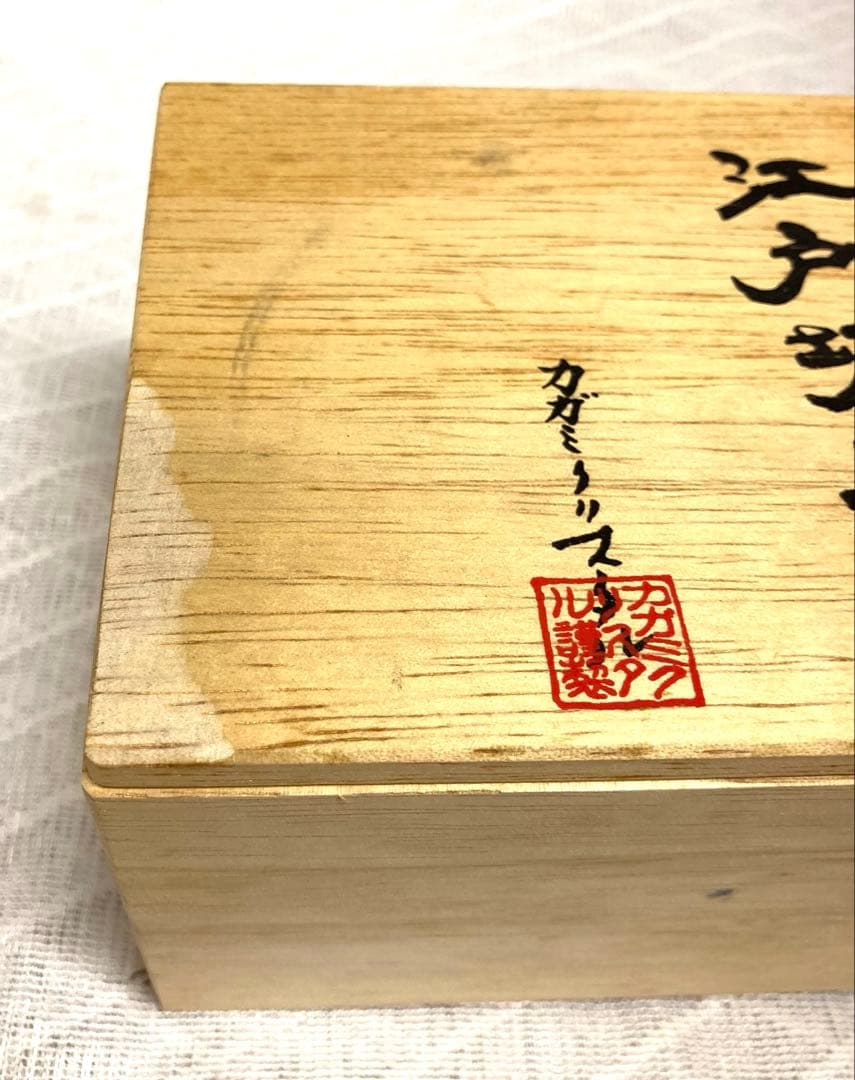 江戸
カガミクリスタル
カガミク
リスタ
ル謹製